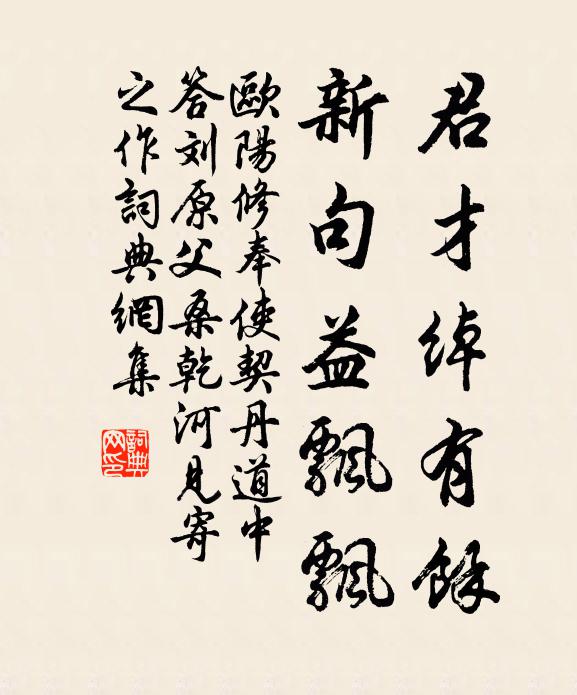 君才绰有餘
新句益飄飄
歐陽修奉使契丹道中
答刘原父桑乾河見寄
之作詞典網集
詞典網印